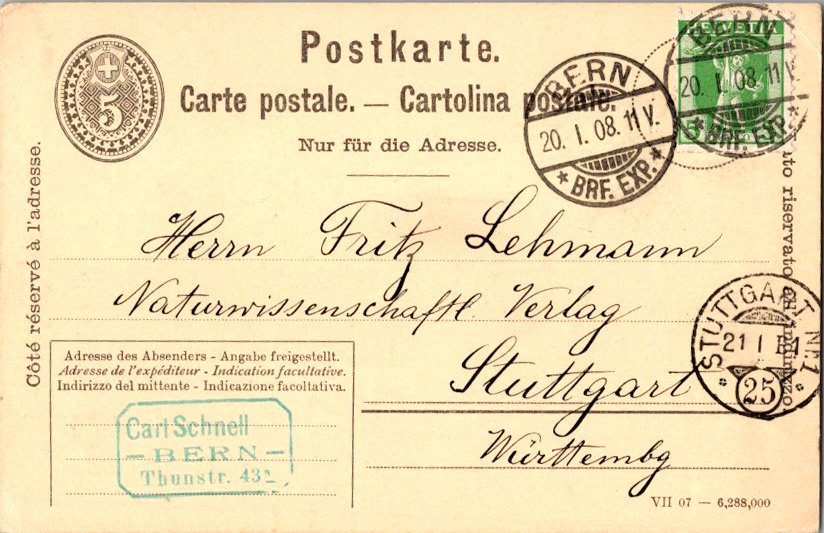 Postkarte.
Carte postale. — Cartolina postale.
Nur für die Adresse.
5
HELVETIA
5
BERN
20. I. 08. 11 V.
* BRF. EXP. *
BERN
20. I. 08. 11 V.
* BRF. EXP. *
Côté réservé à l'adresse.
Herrn Fritz Lehmann
Naturwissenschaftl. Verlag
Stuttgart
Württembg
STUTTGART Nr. 1
21 I
25
Adresse des Absenders - Angabe freigestellt.
Adresse de l'expéditeur - Indication facultative.
Indirizzo del mittente - Indicazione facoltativa.
Carl Schnell
— BERN —
Thunstr. 43
VII 07 — 6,288,000